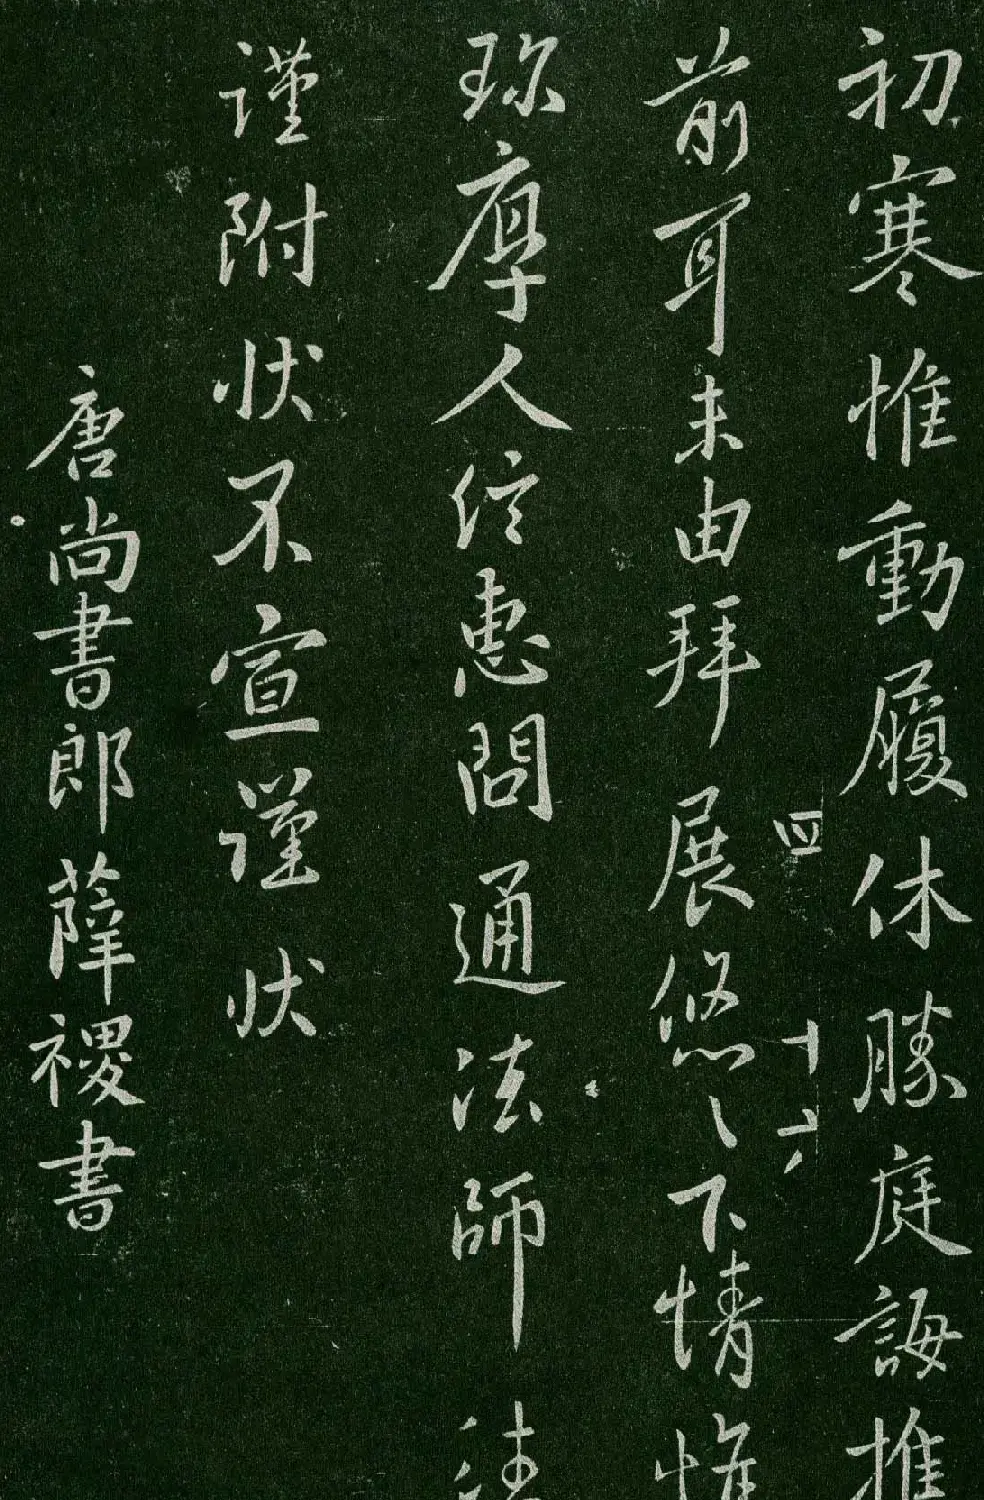 初寒惟動履休勝庭誨推
四 十六
前耳未由拜展悠〻下情惟
珎厚人信惠問通法師
謹附狀不宣謹狀
唐尚書郎薛稷書